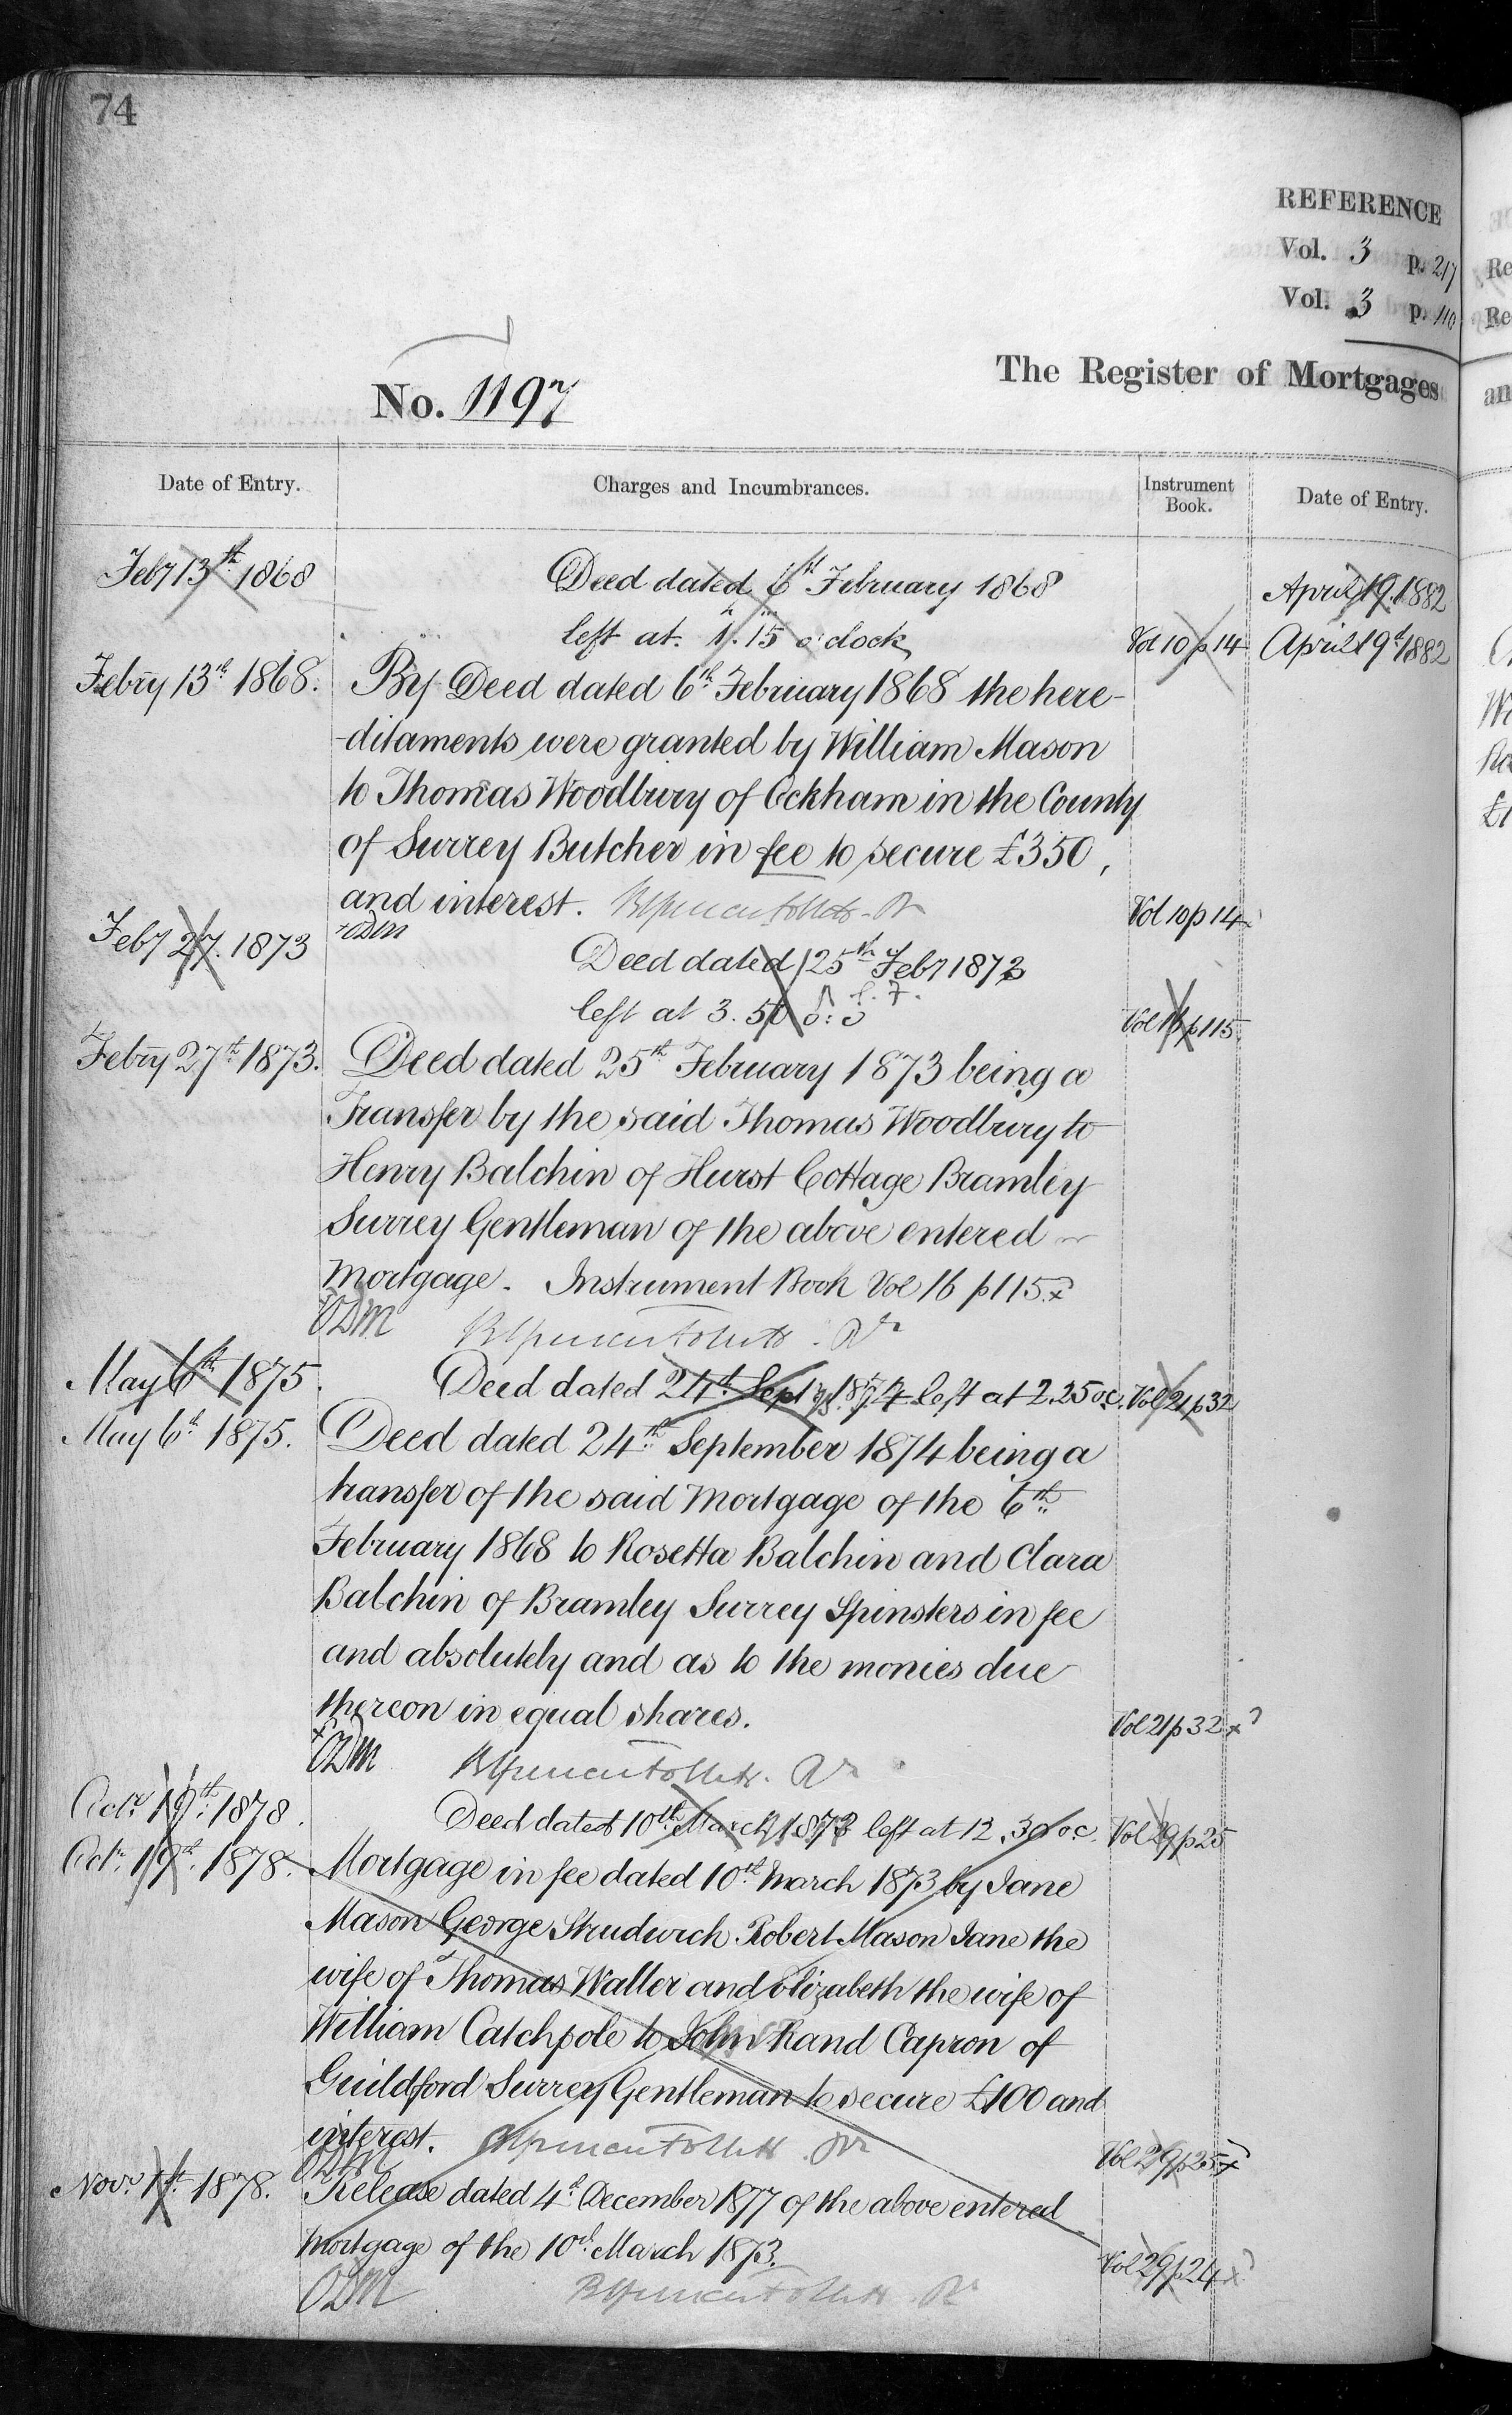 74
REFERENCE
Vol. 3 p. 217
Vol. 3 p. 110
No. 1197
The Register of Mortgages
Date of Entry.
Charges and Incumbrances.
Instrument Book.
Date of Entry.
Feby 13th 1868
Deed dated 6th February 1868
April 19. 1882
left at 1.15 o'clock
Vol 10 p 14
April 19th 1882
Febry 13th 1868.
By Deed dated 6th February 1868 the here-
-ditaments were granted by William Mason
to Thomas Woodbury of Ockham in the County
of Surrey Butcher in fee to secure £350,
and interest.
Vol 10 p 14
ODM
Feby 27. 1873
Deed dated 25th Feby 1873
left at 3.50 o:c
Vol 16 p 115
Febry 27th 1873.
Deed dated 25th February 1873 being a
Transfer by the said Thomas Woodbury to
Henry Balchin of Hurst Cottage Bramley
Surrey Gentleman of the above entered
Mortgage. Instrument Book Vol 16 p 115
ODM
May 6th 1875.
Deed dated 24th Sept 1874 left at 2.25 o:c.
Vol 21 p 32
May 6th 1875.
Deed dated 24th September 1874 being a
transfer of the said Mortgage of the 6th
February 1868 to Rosetta Balchin and Clara
Balchin of Bramley Surrey Spinsters in fee
and absolutely and as to the monies due
thereon in equal shares.
Vol 21 p 32
ODM
Octr 19th 1878.
Deed dated 10th March 1873 left at 12.30 o:c.
Vol 29 p 25
Octr 19th 1878.
Mortgage in fee dated 10th March 1873 by Jane
Mason George Strudwick Robert Mason Jane the
wife of Thomas Waller and Elizabeth the wife of
William Catchpole to John Rand Capron of
Guildford Surrey Gentleman to secure £100 and
interest.
Vol 29 p 25
ODM
Novr 1st 1878.
Release dated 4th December 1877 of the above entered
Mortgage of the 10th March 1873.
Vol 29 p 24
ODM